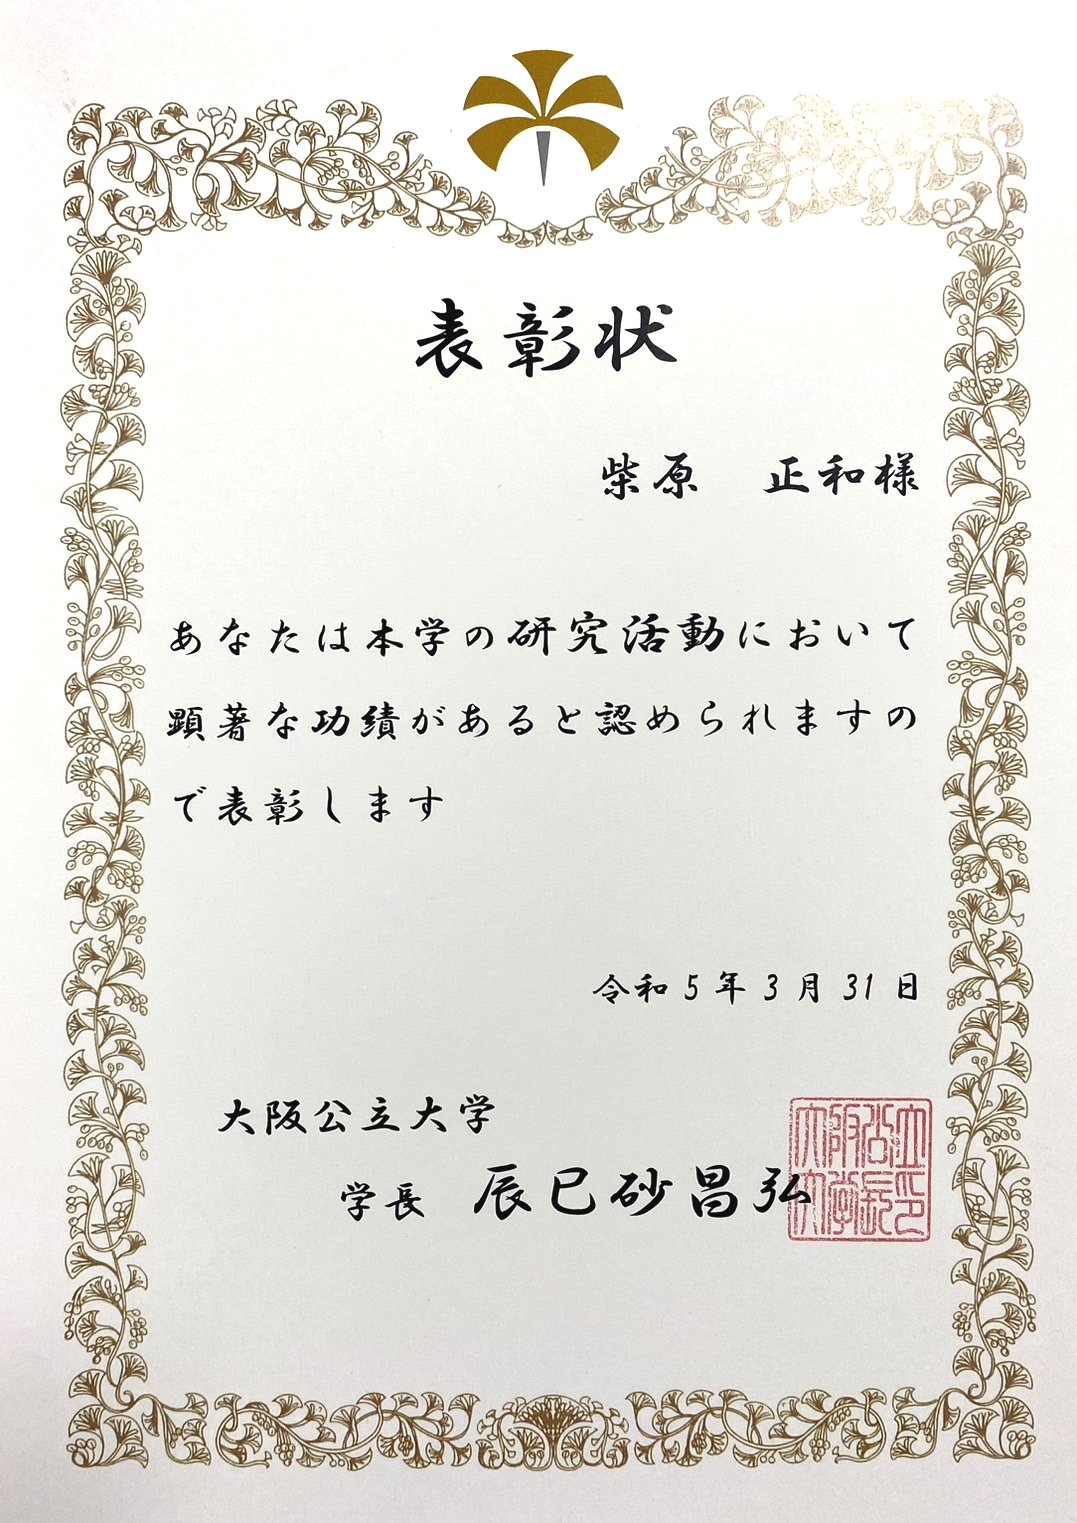 表彰状
柴原　正和様
あなたは本学の研究活動において
顕著な功績があると認められますの
で表彰します
令和5年3月31日
大阪公立大学
学長　辰巳砂昌弘